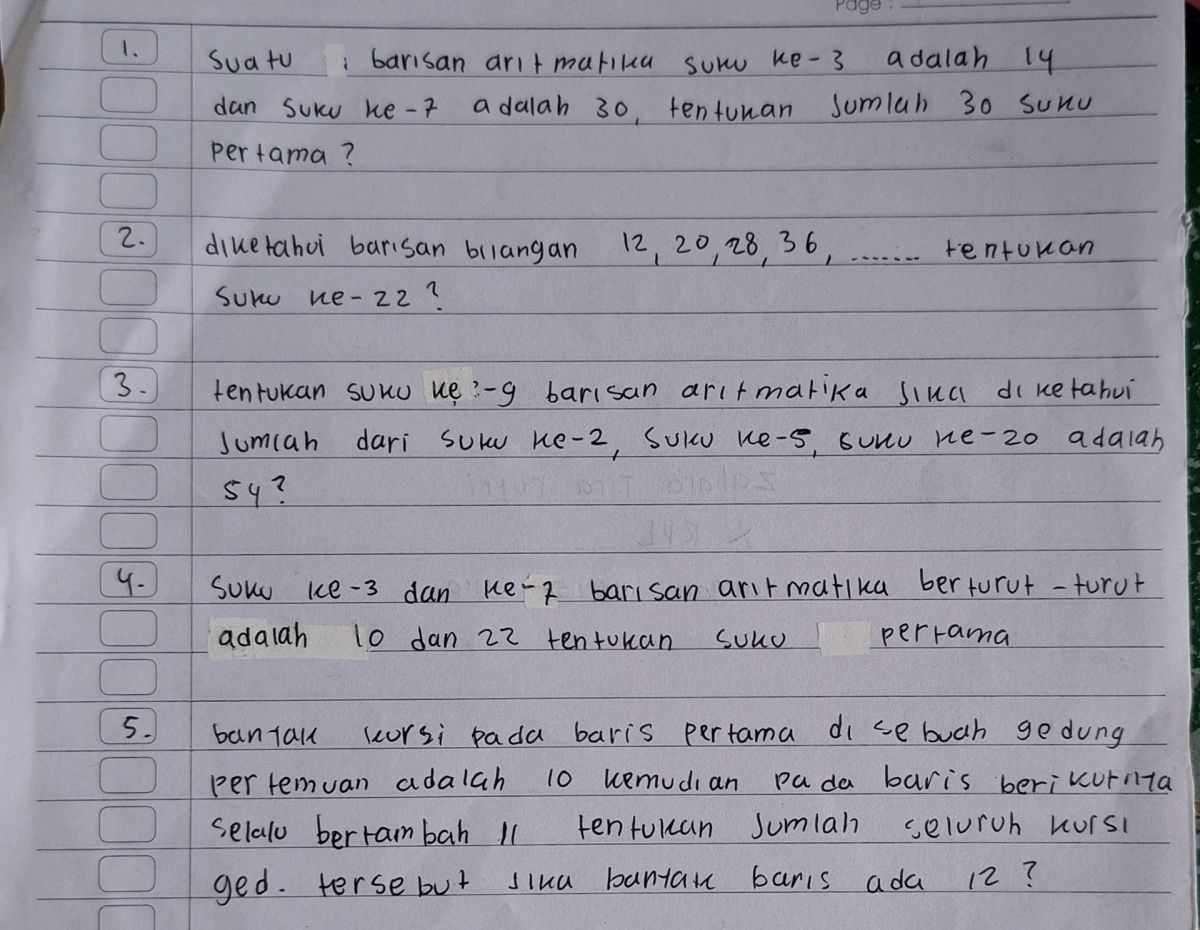 Page :
1. Suatu barisan aritmatika suku ke-3 adalah 14
dan suku ke-7 adalah 30, tentukan jumlah 30 suku
pertama?
2. diketahui barisan bilangan 12, 20, 28, 36, ....... tentukan
suku ke-22?
3. tentukan suku ke-9 barisan aritmatika jika diketahui
jumlah dari suku ke-2, suku ke-5, suku ke-20 adalah
54?
4. suku ke-3 dan ke-7 barisan aritmatika berturut-turut
adalah 10 dan 22 tentukan suku pertama
5. banyak kursi pada baris pertama di sebuah gedung
pertemuan adalah 10 kemudian pada baris berikutnya
selalu bertambah 11 tentukan jumlah seluruh kursi
ged. tersebut jika banyak baris ada 12?